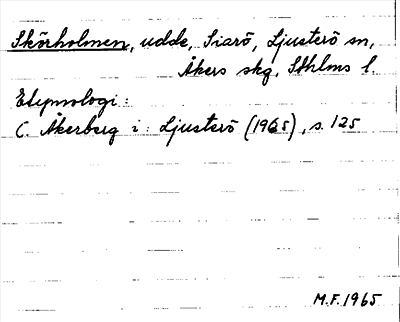 Skörholmen, udde, Siarö, Ljusterö sn,
Åkers skg, Sthlms l.
Etymologi:
C. Åkerberg i: Ljusterö (1965), s. 125
M.F. 1965